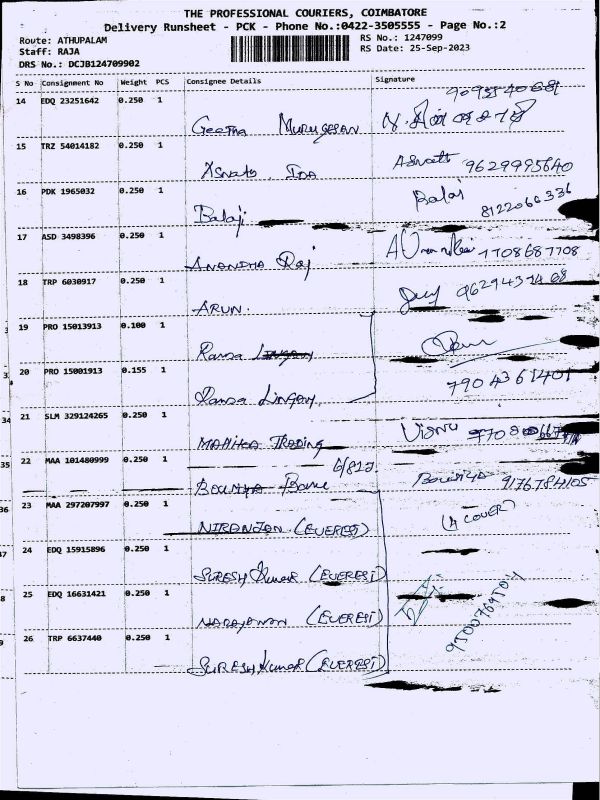 THE PROFESSIONAL COURIERS, COIMBATORE
Delivery Runsheet - PCK - Phone No.:0422-3505555 - Page No.:2
Route: ATHUPALAM
RS No.: 1247099
Staff: RAJA
RS Date: 25-Sep-2023
DRS No.: DCJB124709902
S No Consignment No Weight PCS Consignee Details Signature
14 EDQ 23251642 0.250 1
Geetha Murugesan
15 TRZ 54014182 0.250 1 Asvath 9629995640
Asvath Ida
16 PDK 1965032 0.250 1 Balaji 8122066336
Balaji
17 ASD 3498396 0.250 1 7708687708
Anandha Raj
18 TRP 6030917 0.250 1
ARUN.
19 PRO 15013913 0.100 1
Ramsa Lingam
20 PRO 15001913 0.155 1 7904361401
Ramsa Lingam
21 SLM 329124265 0.250 1 Visnu
Mallika Trading
22 MAA 101480999 0.250 1 9176784105
23 MAA 297207997 0.250 1 (4 COVER)
NIRANJAN (EVEREST)
24 EDQ 15915896 0.250 1
SURESH Kumar (EVEREST)
25 EDQ 16631421 0.250 1
NARAYANAN (EVEREST)
26 TRP 6637440 0.250 1
SURESH Kumar (EVEREST)